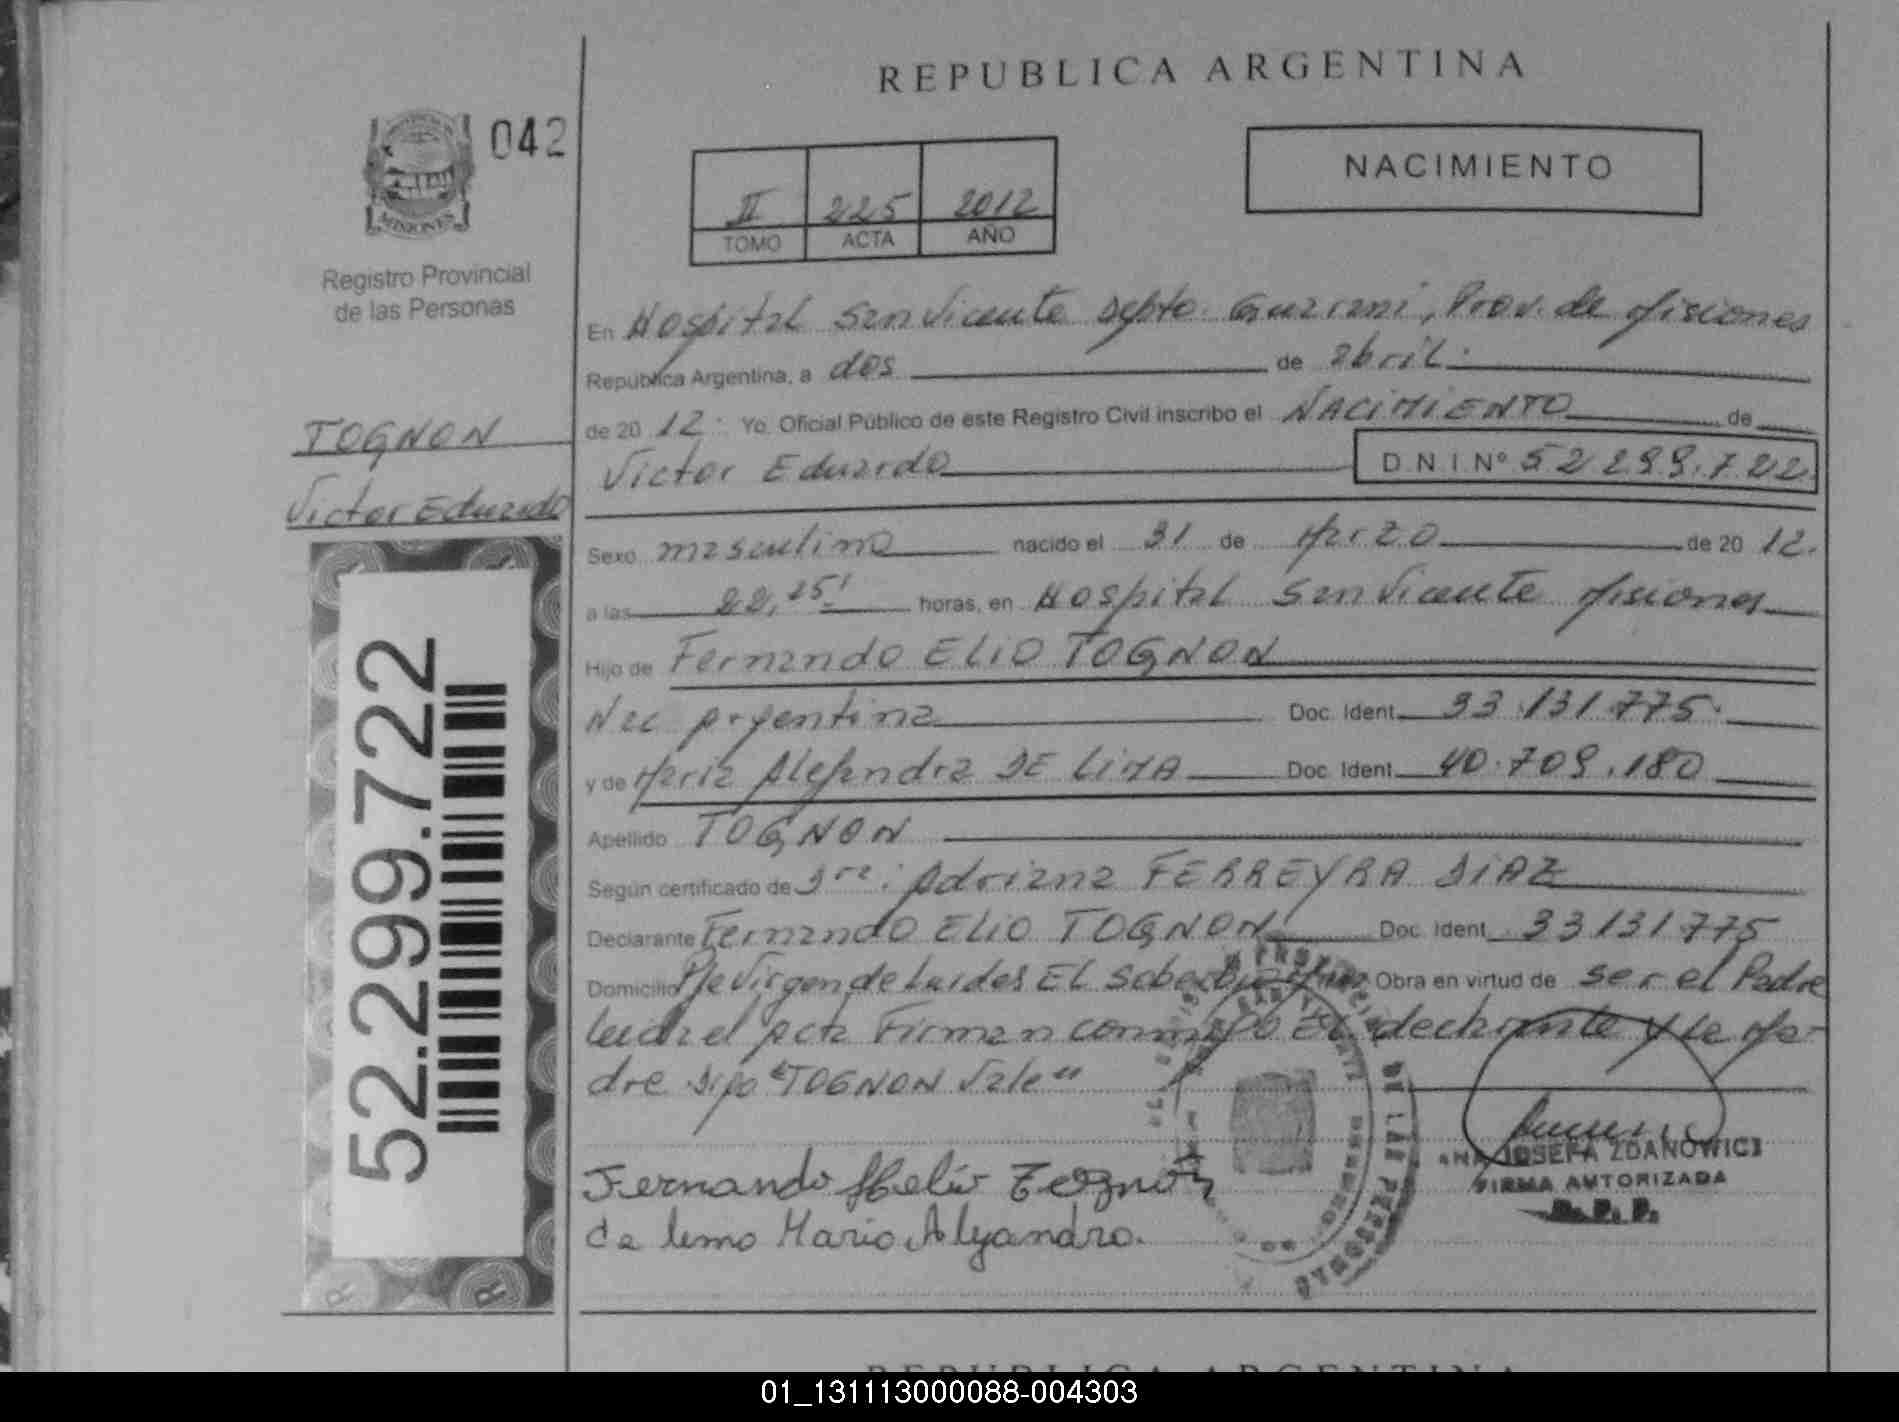 REPUBLICA ARGENTINA
042
MISIONES
Registro Provincial
de las Personas
II 225 2012
TOMO ACTA AÑO
NACIMIENTO
TOGNON
Victor Eduardo
52.299.722
En Hospital San Vicente Depto. Guarani, Prov. de Misiones
República Argentina, a dos de abril.
de 20 12. Yo, Oficial Público de este Registro Civil inscribo el NACIMIENTO de
Victor Eduardo D.N.I Nº 52 299.722
Sexo masculino nacido el 31 de Marzo de 20 12.
a las 22, horas, en Hospital San Vicente Misiones
Hijo de Fernando ELIO TOGNON
Nac Argentina Doc. Ident. 33.131.775.
y de Maria Alejandra DE LIMA Doc. Ident. 40.709.180
Apellido TOGNON
Según certificado de Dra: Adriana FERREYRA DIAZ
Declarante Fernando ELIO TOGNON Doc. Ident. 33131775
Domicilio EL Soberbio Obra en virtud de ser el Padre
Leida el Acta Firman conmigo EL declarante y la Ma-
dre Digo "TOGNON Vale"
Fernando Helio Tognon
de lima Maria Alejandra.
DE LAS PERSONAS
ANA JOSEFA ZDANOWICZ
FIRMA AUTORIZADA
R. P. P.
REPUBLICA ARGENTINA
01_131113000088-004303